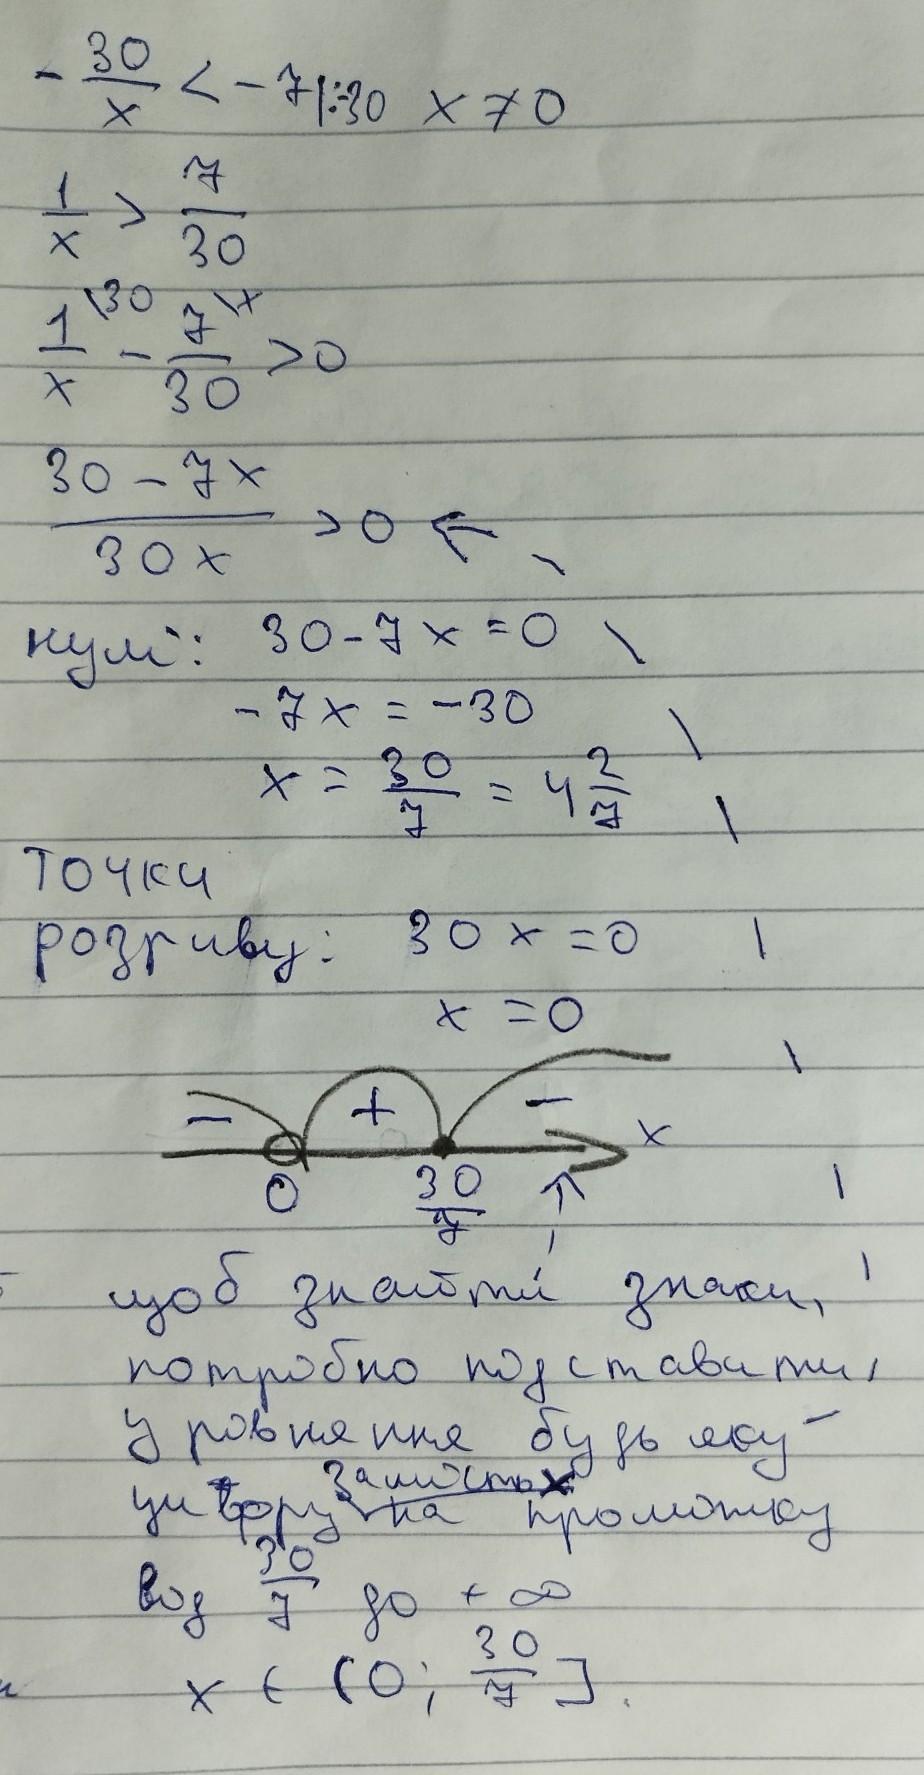 - 30/x < - 7 |:-30 x ≠ 0
1/x > 7/30
1/x \30 - 7/30 \x > 0
30 - 7x / 30x > 0 ←
нулі: 30 - 7x = 0
-7x = -30
x = 30/7 = 4 2/7
точки
розриву: 30x = 0
x = 0
- + - x
0 30/7
щоб знайти знаки,
потрібно подставити
у рівняння будь яку
цифру замість x на проміжку
від 30/7 до + ∞
x ∈ (0; 30/7].